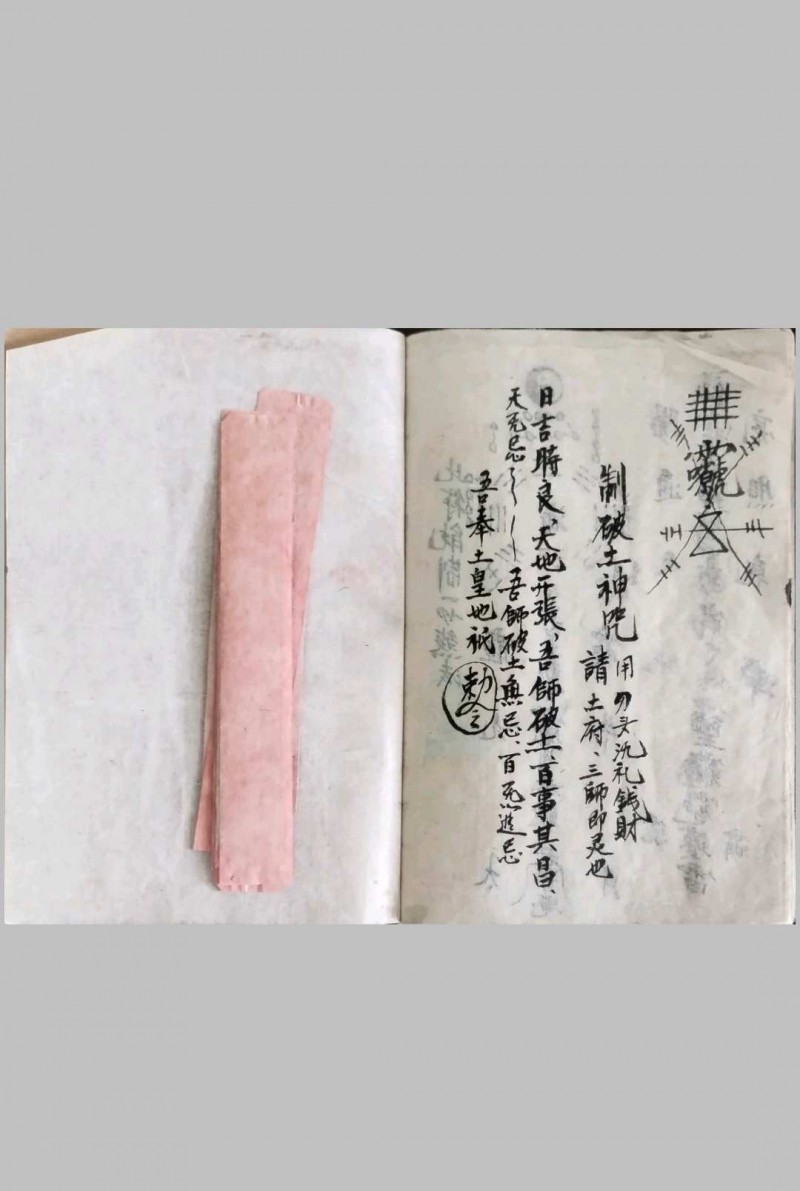 制破土神咒
用刀头沉礼錢財
請土府、三師即灵也
日吉時良、天地开張、吾師破土、百事其昌、
天无忌 吾師破土無忌、百无進忌
吾奉土皇地祇
勅令